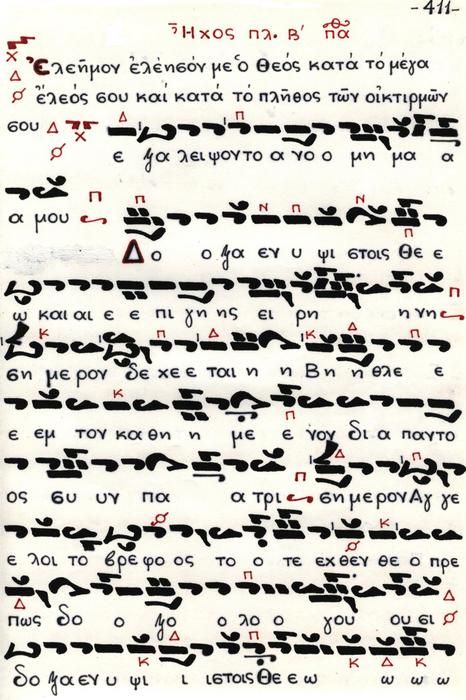 -411-
Ἦχος πλ. Β´ πα
Ἐλεῆμον ἐλέησόν με ὁ Θεός κατά τό μέγα
ἔλεός σου καί κατά τό πλῆθος τῶν οἰκτιρμῶν
σου Δ
ε ξα λειψον το α νο ο μη μα α
α μου Π
Δο ο ξα εν υ ψι στοις Θε ε
ω και αι ε ε πι γη ης ει ρη η νη Π
ση με ρον δε χε ε ται η η Βη η θλε ε
ε εμ τον κα θη η με ε νον δι α παντο
ος συ υν πα α τρι Π ση με ρον Αγ γε
ε λοι το βρε φο ος το ο τε εχ θεν θε ο πρε
πως δο ο ξο ο λο ο γου ου σι Δ
δο ξα εν υ ψι ι ιστοις Θε ε ω ω ω ω